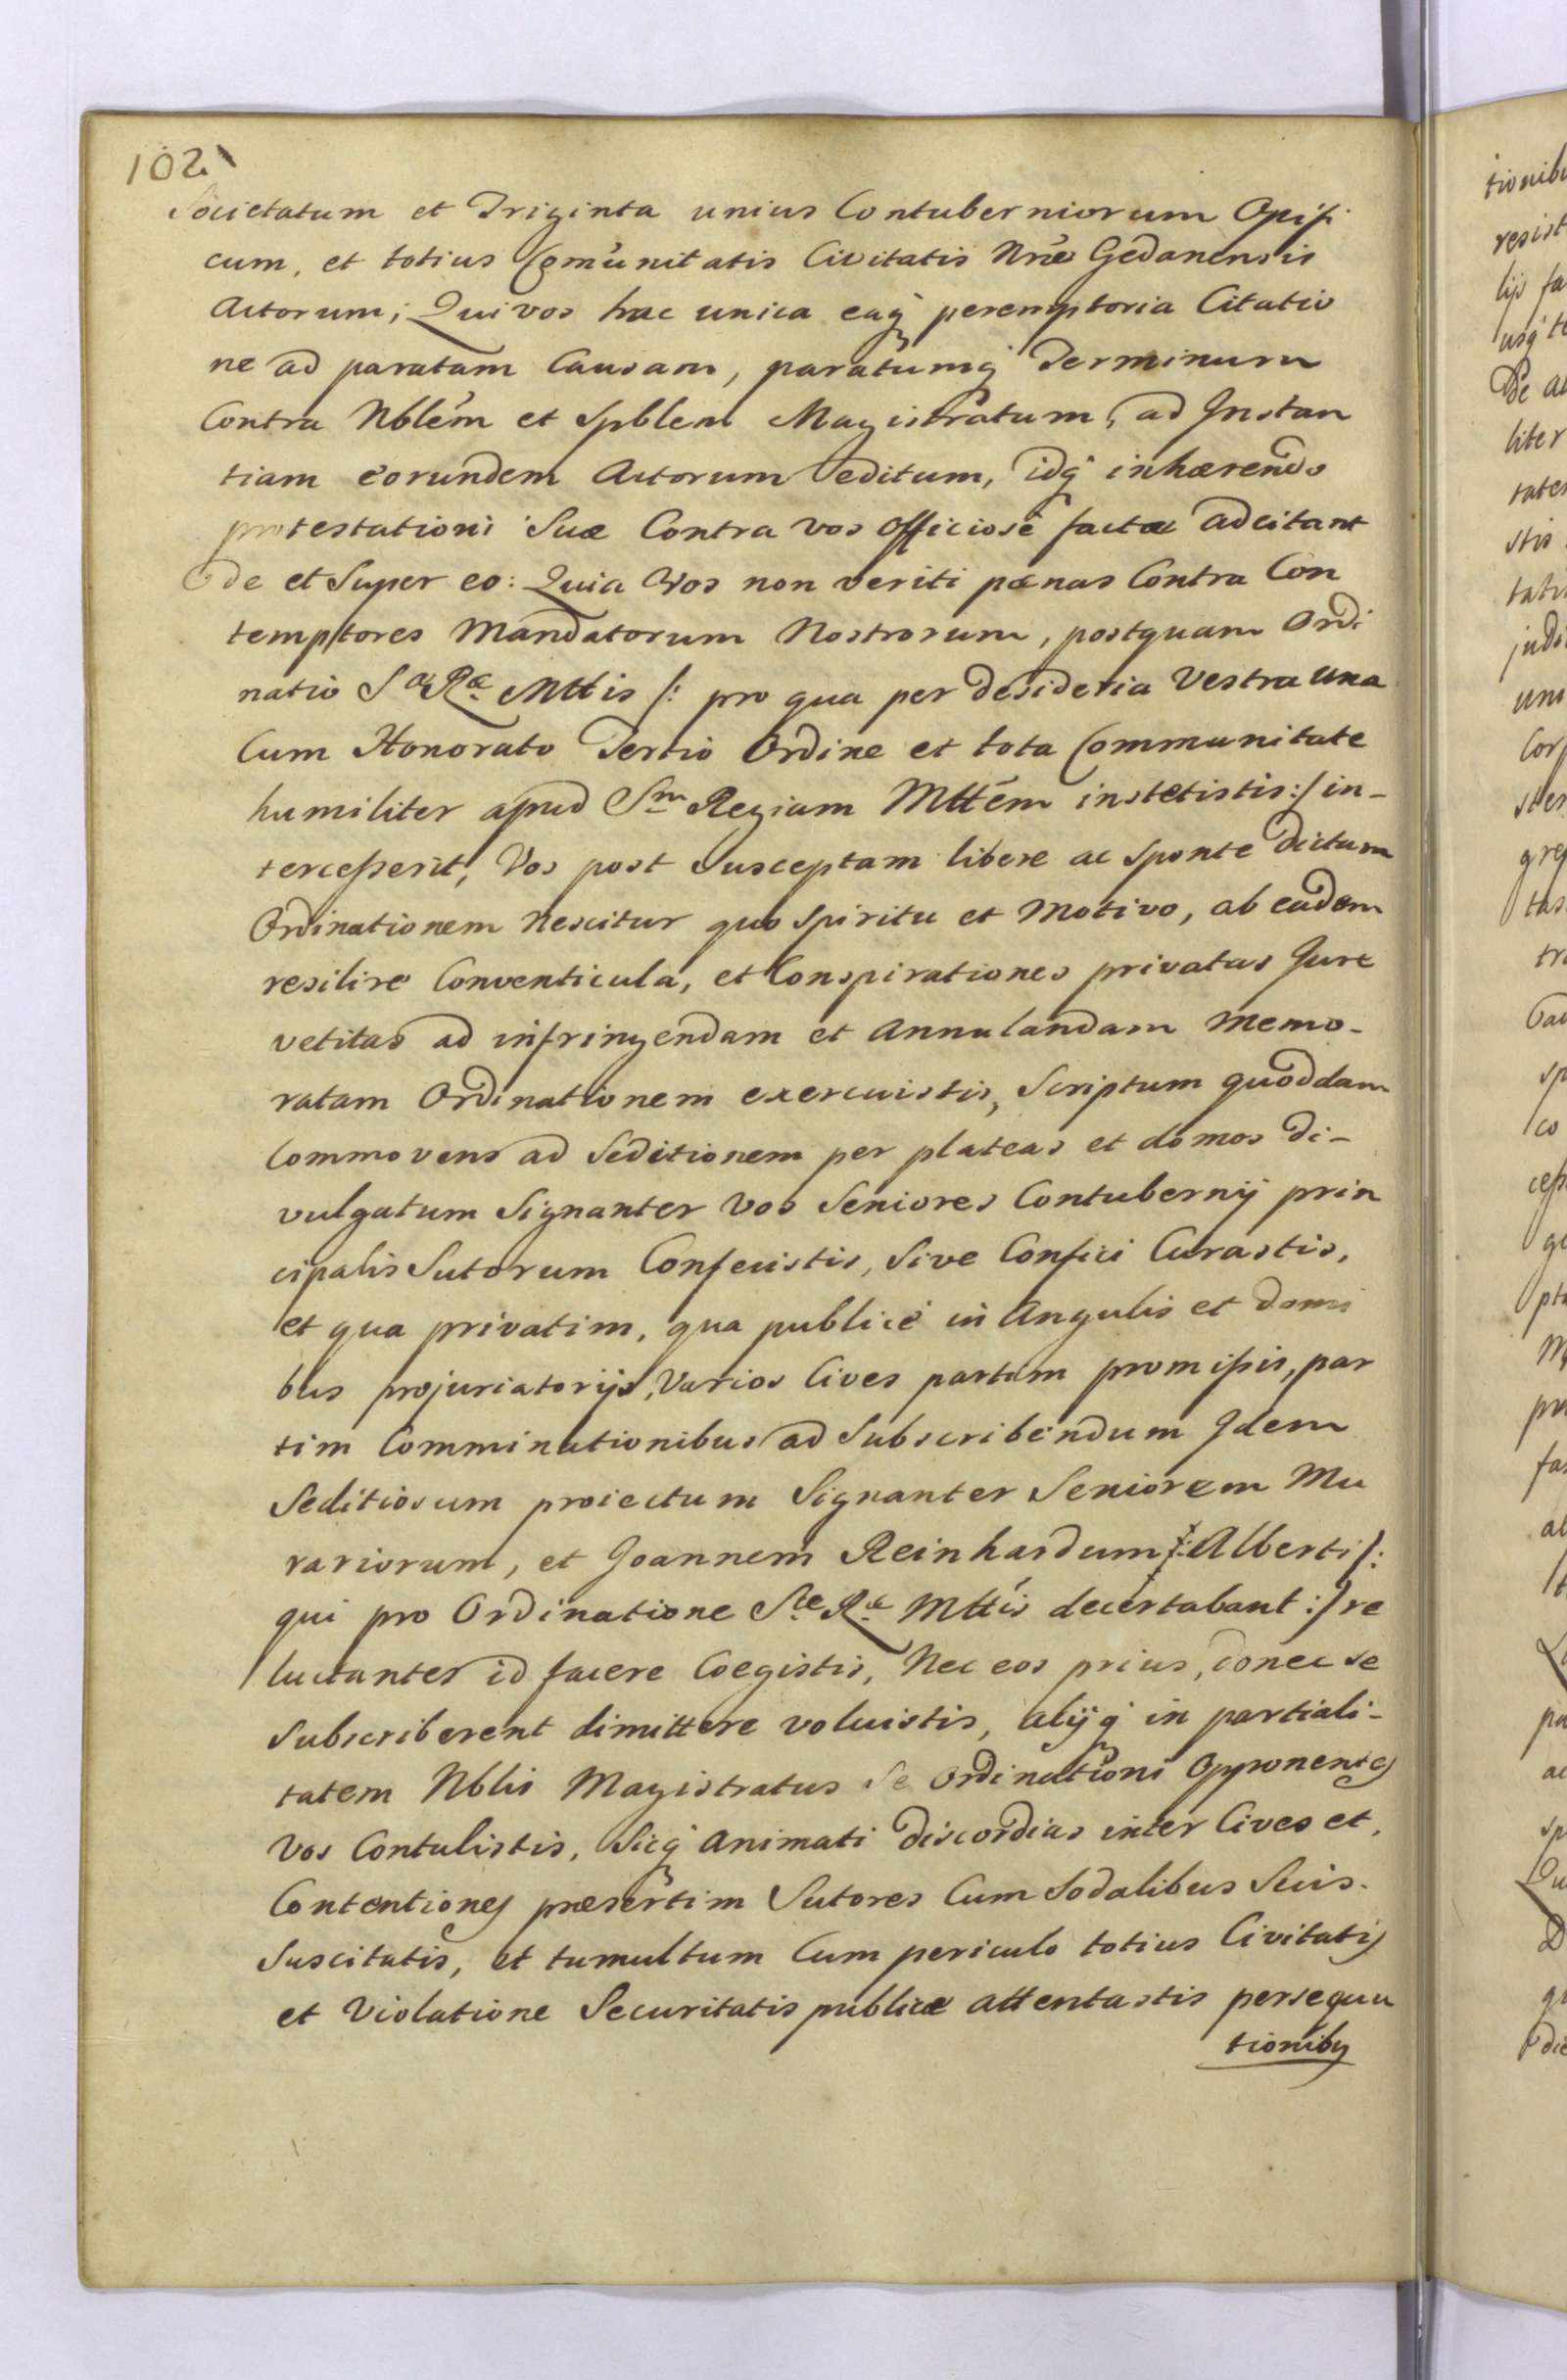 102
Societatum et Triginta unius Contuberniorum Opifi
cum, et totius Com̃unitatis Civitatis Nr̃æ Gedanensis
Actorum; Qui vos hac unica eaq́ peremptoria Citatio
ne ad paratam Causam, paratumq́ Terminum
Contra Nblem̃ et Spblem Magistratum, ad Instan
tiam eorundem Actorum editum, idq́ inhærendo
protestationi Suæ Contra vos officiosè factæ adcitant
de et Super eo: Quia Vos non veriti pænas Contra Con
temptores Mandatorum Nostrorum, postquam Ordi
natio Sæ Ræ Mttis /: pro qua per desideria Vestra una
Cum Honorato Tertio Ordine et tota Communitate
humiliter apud Sm Regiam Mttém instetistis :/ in-
terceßerit, Vos post susceptam libere ac sponte dictam
Ordinationem nescitur quo spiritu et Motivo, ab eadem
resilire Conventicula, et Conspirationes privatas Jure
vetitas ad infringendam et Annulandam memo-
ratam Ordinationem exercuistis, Scriptum quoddam
Commovens ad Seditionem per plateas et domos di-
vulgatum Signanter Vos Seniores Contubernij prin
cipalis Sutorum Confecistis, Sive Confici Curastis,
et qua privatim, qua publicè in Angulis et domi
bus projuriatorijs, Varios Cives partim promißis, par
tim Comminationibus ad Subscribendum Idem
Seditiosum proiectum Signanter Seniorem Mu
rariorum, et Joannem Reinhardum /: Alberti /:
qui pro Ordinatione Sæ Ræ Mttis decertabant :/ re
luctanter id facere Coegistis, Nec eos prius, donec se
Subscriberent dimittere voluistis, alijq́ in partiali-
tatem Nblis Magistratus Se Ordinationi Opponentes
Vos Contulistis, Sicq́ animati discordias inter Cives et,
Contentiones præsertim Sutores Cum Sodalibus Suis.
Suscitatis, et tumultum Cum periculo totius Civitatis
et Violatione Securitatis publicæ attentastis persequu
tionibus